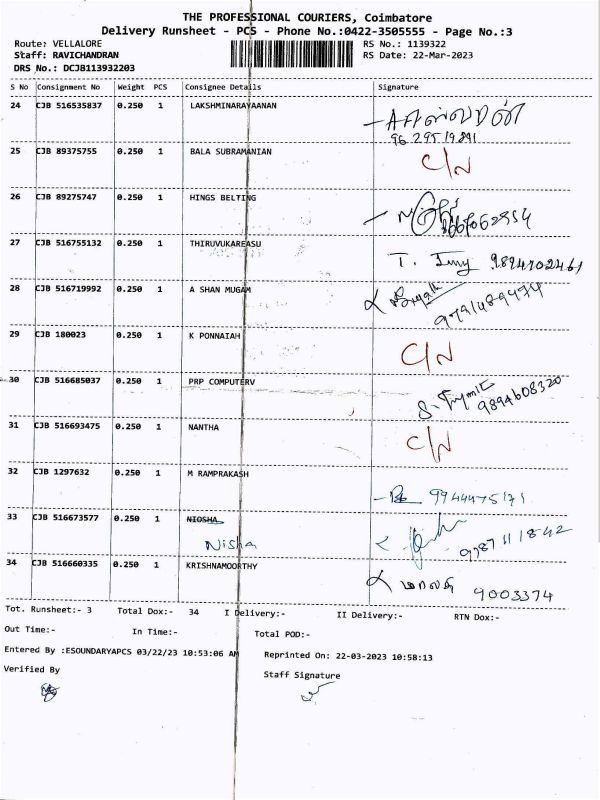 THE PROFESSIONAL COURIERS, Coimbatore
Delivery Runsheet - PCS - Phone No.:0422-3505555 - Page No.:3
Route: VELLALORE RS No.: 1139322
Staff: RAVICHANDRAN RS Date: 22-Mar-2023
DRS No.: DCJB113932203
S No Consignment No Weight PCS Consignee Details Signature
24 CJB 516535837 0.250 1 LAKSHMINARAYAANAN
25 CJB 89375755 0.250 1 BALA SUBRAMANIAN C/N
26 CJB 89275747 0.250 1 HINGS BELTING
27 CJB 516755132 0.250 1 THIRUVUKAREASU T. 9894702461
28 CJB 516719992 0.250 1 A SHAN MUGAM 9791489474
29 CJB 180023 0.250 1 K PONNAIAH C/N
30 CJB 516685037 0.250 1 PRP COMPUTERV 9894608320
31 CJB 516693475 0.250 1 NANTHA C/N
32 CJB 1297632 0.250 1 M RAMPRAKASH 9944475171
33 CJB 516673577 0.250 1 NIOSHA
Nisha 9787111842
34 CJB 516660335 0.250 1 KRISHNAMOORTHY மாலதி 9003374
Tot. Runsheet:- 3 Total Dox:- 34 I Delivery:- II Delivery:- RTN Dox:-
Out Time:- In Time:- Total POD:-
Entered By :ESOUNDARYAPCS 03/22/23 10:53:06 AM Reprinted On: 22-03-2023 10:58:13
Verified By Staff Signature